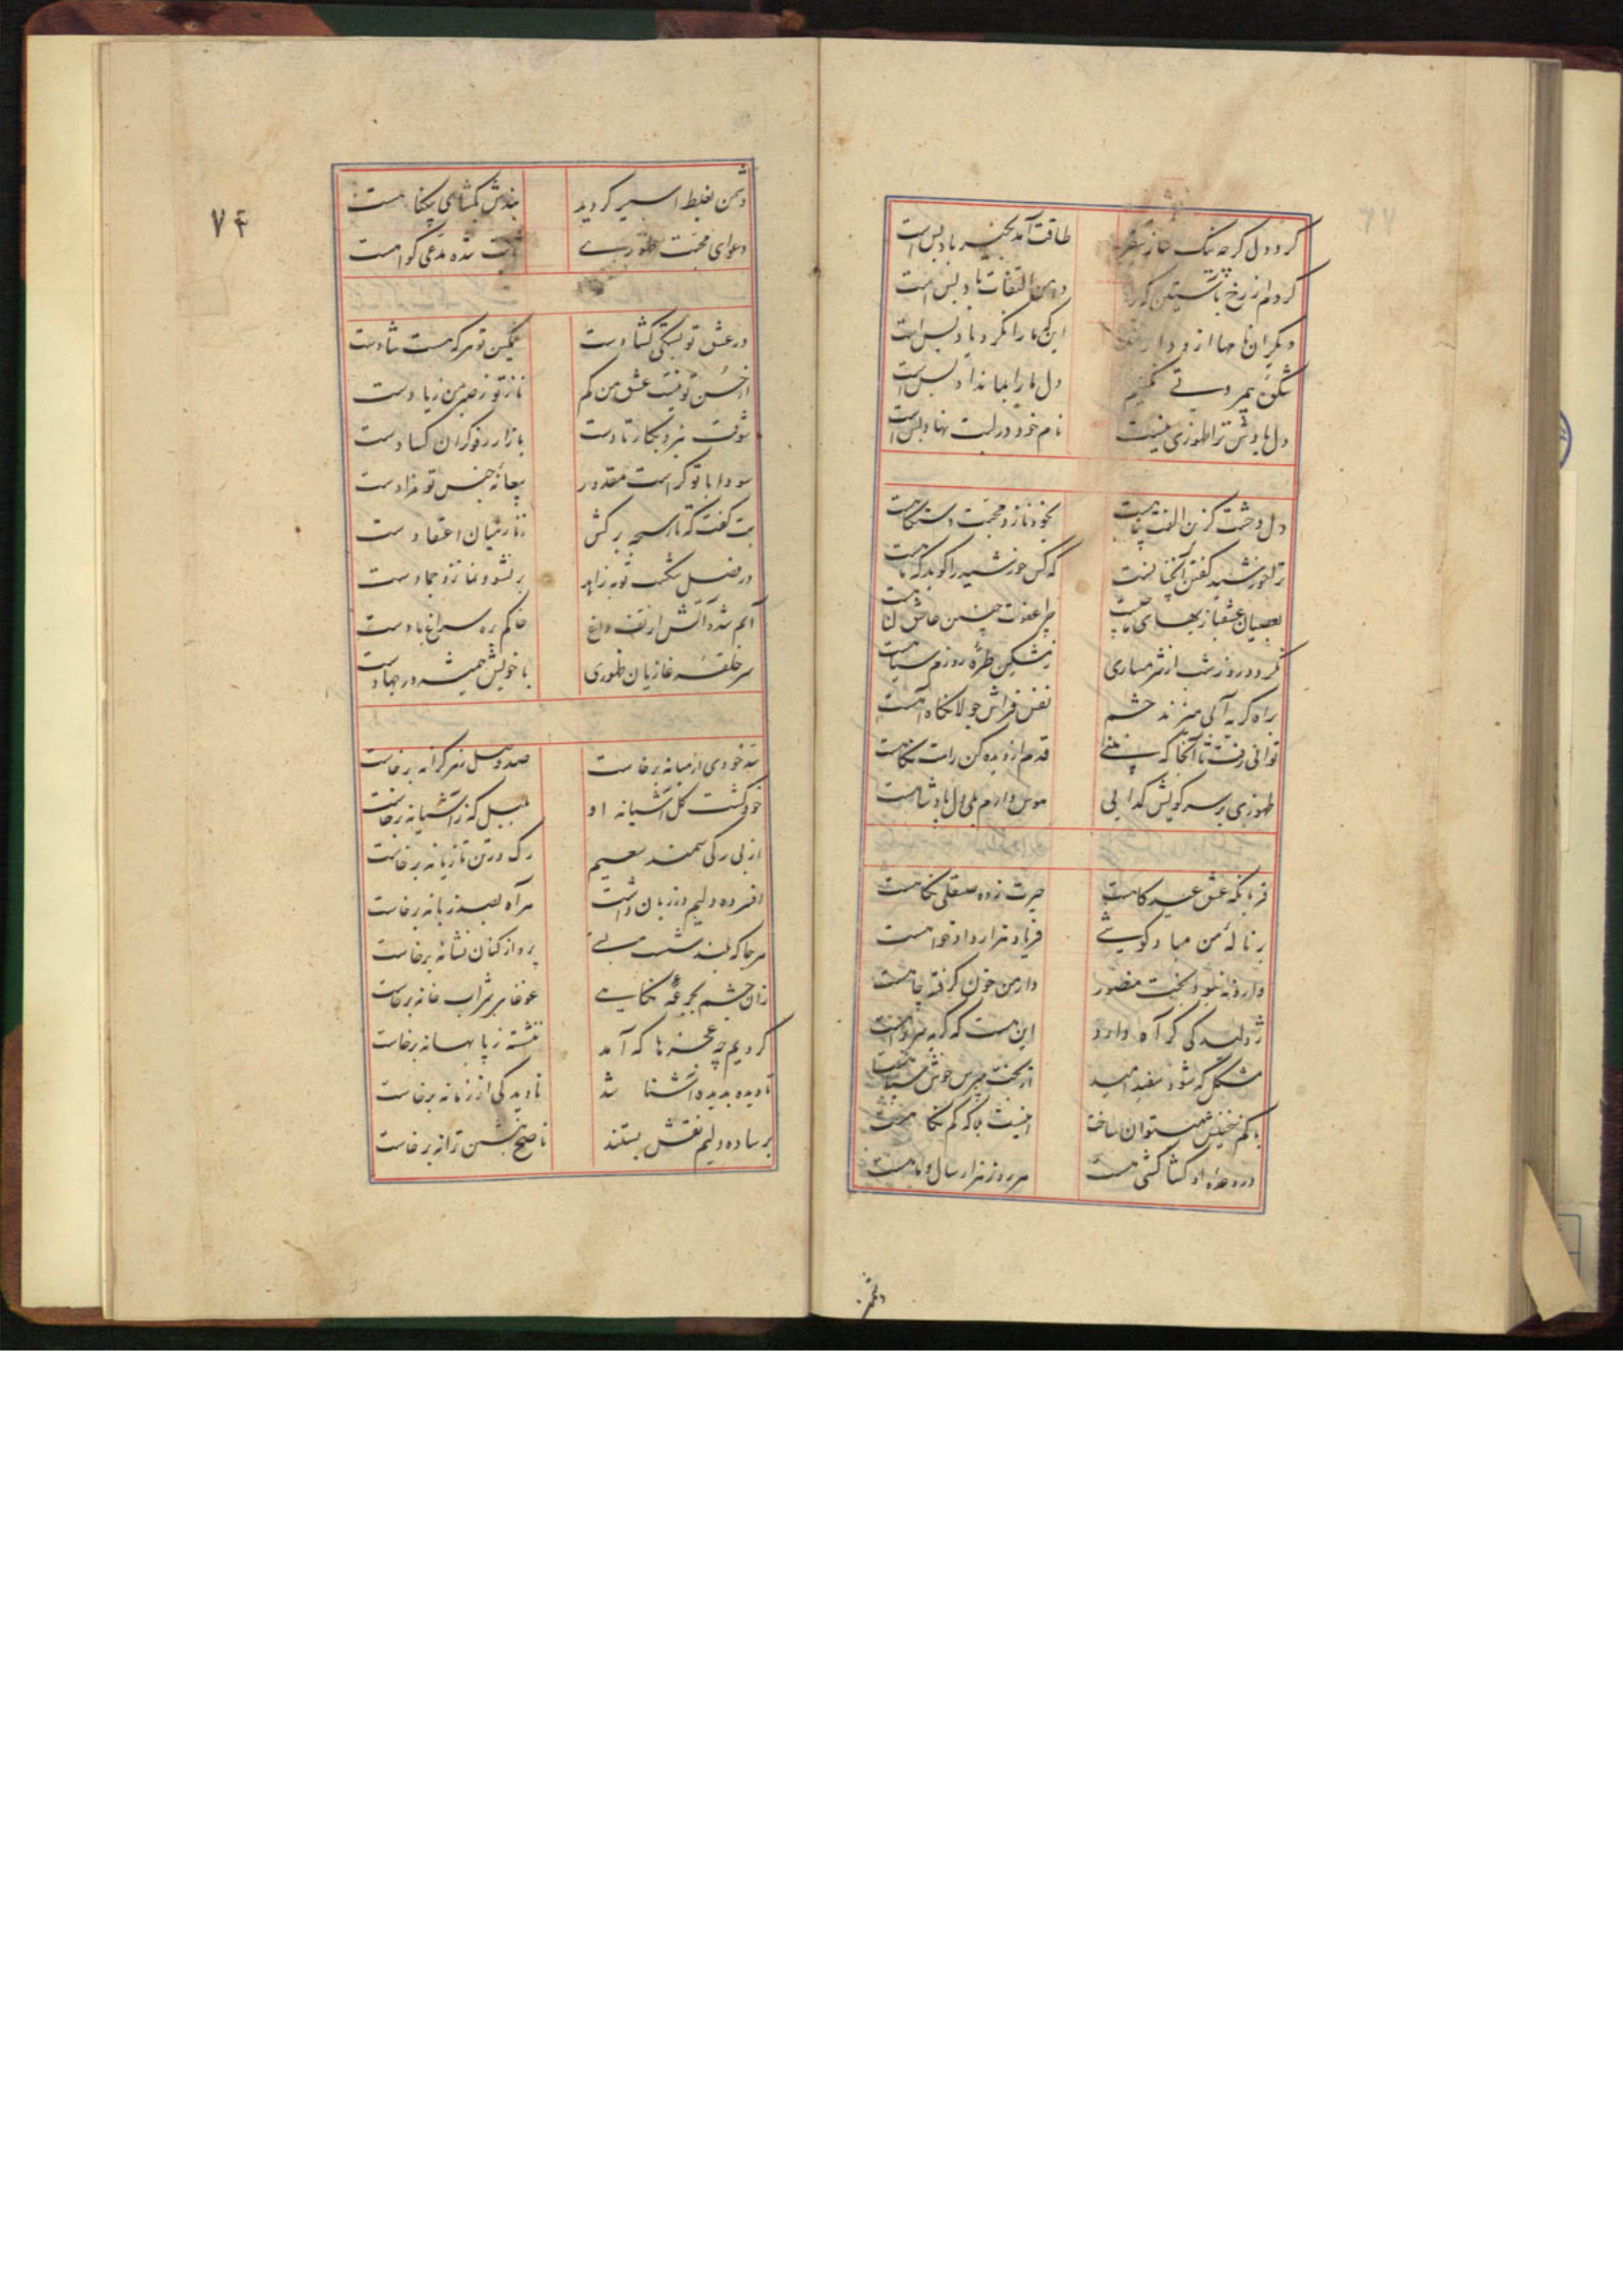 گر دو دل گرچه تنگ
طاقت آمد بخیر باد بس است
کردم از رخ
دهن التفات باد بس است
دیگران نامها ازو دارند
این که ما را نکرد یاد بس است
شکوه
دل ما را بما نداد بس است
دل ما
نام خود در لبت نهاد بس است
دل وحشت گزین الفت پناهست
بخود نازد محبت دستگاهست
ترا خورشید گفتن آنچنانست
که کس خورشید را گوید که ماهست
بعصیان عشقبازیهای ما
چرا عفوت چنین عاشق گناهست
گر دو روز شب از شرمساری
ز مشکین طره روزم سیاهست
براه گریه آبی میزند چشم
نفس فراش جولانگاه آهست
توانی رفت تا آنجا که بینی
قدم از دیده کن رامت نگاهست
ظهوری بر سر کویش گدایی
هوس دارم ولی دل پادشاهست
قربانگه عشق عیدگاهست
حیرت زده صیقلی نگاهست
بر ناله من مباد گوشی
فریاد هزار دادخواهست
وارونه نبود بخت منصور
دار من خون گرفته چاهست
ژولیدگی گر آه دارد
این هست که گریه سر براهست
مشکل که شود سفید امید
از بخت مپرس خوش سیاهست
با کم سخنیش میتوان ساخت
اینست بلا که کم نگاهست
در وعده او کشاکشی هست
هر روز هزار سال و ماهست
دشمن
۷۴
دشمن بغلط اسیر گردید
بندش بگشای بیگناهست
دعوای محبت ظهوری
ثابت شده مدعی گواهست
در عشق تو بستگی گشادست
غمگین تو هر که هست شادست
از حسن تو نیست عشق من کم
ناز تو ز صبر من زیادست
شوقت نبرد بکار تا دست
بازار رفوگران کسادست
سودا با تو کراست مقدور
بیعانه جنس تو مرادست
بت گفت که تار سبحه برکش
زنار میان اعتقادست
در فصل شکست توبه زاهد
بر نشو و نما نزد جمادست
آبم شده آتش از تف داغ
خاکم بره سراغ بادست
سر حلقه غازیان ظهوری
با خویش همیشه در جهادست
تا خودی از میانه برخاست
صد وصل ز هر کرانه برخاست
خود گشت گل آشیانه او
بلبل که ز آشیانه برخاست
از بی رگی سمند سعیم
رگ در تن تازیانه برخاست
افسرده دلیم ور زبان داشت
هر آه بصد زبانه برخاست
هر جا که بلند شست
پرواز کنان نشانه برخاست
زان چشم بجرعه نگاهی
غوغا بر شراب خانه برخاست
کردیم چه عجزها که آمد
ننشسته ز پا بهانه برخاست
تا دیده بدیده آشنا شد
نادیدگی از زمانه برخاست
بر ساده دلیم نقش بستند
ناصح بنشین ترانه برخاست